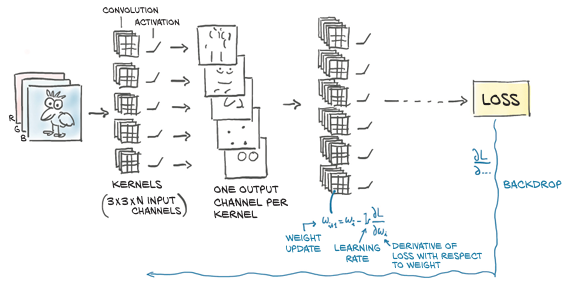 CONVOLUTION
ACTIVATION
R
G
B
KERNELS
(3×3×N INPUT
CHANNELS)
ONE OUTPUT
CHANNEL PER
KERNEL
LOSS
∂L
∂...
BACKDROP
WEIGHT
UPDATE
LEARNING
RATE
DERIVATIVE OF
LOSS WITH RESPECT
TO WEIGHT